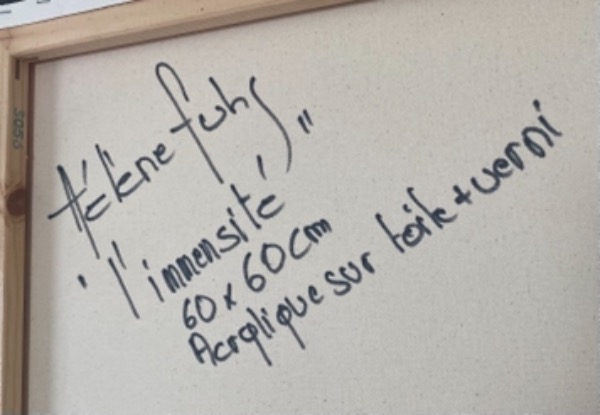 Hélène fuhs
"l'immensité"
60 x 60 cm
Acrylique sur toile + verni
5050